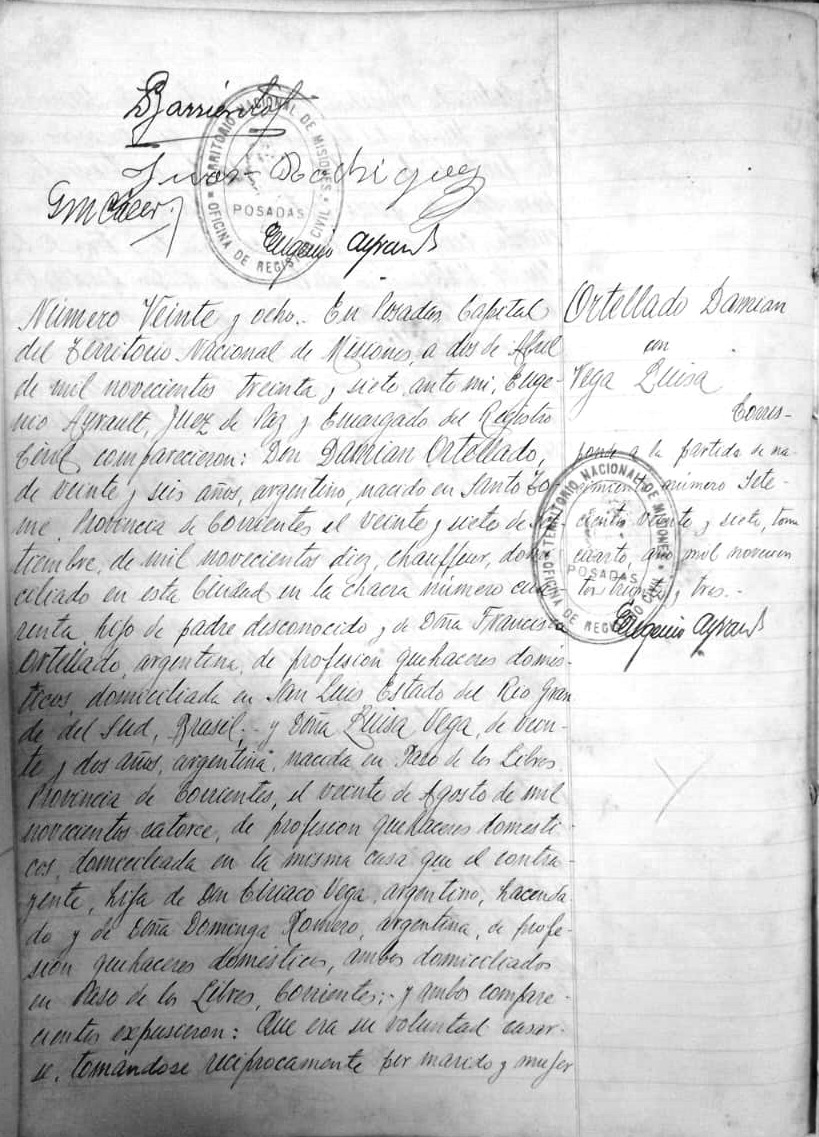 Barrientos
TERRITORIO NACIONAL DE MISIONES
POSADAS
OFICINA DE REGISTRO CIVIL
Juan Rodriguez
Eugenio Ayrault
Número Veinte y ocho.- En Posadas Capital
del Territorio Nacional de Misiones, a dos de Abril
de mil novecientos treinta y siete, ante mi, Euge-
nio Ayrault, Juez de Paz y Encargado del Registro
Civil comparecieron: Don Damian Ortellado,
de veinte y seis años, argentino, nacido en Santo To-
mé, Provincia de Corrientes el veinte y siete de Se-
tiembre, de mil novecientos diez, chauffeur, domi-
ciliado en esta Ciudad en la chacra número cua-
renta, hijo de padre desconocido y de Doña Francisca
Ortellado, argentina, de profesion quehaceres domés-
ticos, domiciliada en San Luis Estado del Rio Gran
de del Sud, Brasil; y Doña Luisa Vega, de vein-
te y dos años, argentina, nacida en Paso de los Libres,
Provincia de Corrientes, el veinte de Agosto de mil
novecientos catorce, de profesion quehaceres domesti-
cos, domiciliada en la misma casa que el contra-
yente, hija de Don Ciriaco Vega, argentino, hacenda-
do y de Doña Dominga Romero, argentina, de profe-
sion quehaceres domésticos, ambos domiciliados
en Paso de los Libres, Corrientes;- y ambos compare-
cientes expusieron: Que era su voluntad casar-
se, tomándose reciprocamente por marido y mujer
Ortellado Damian
con
Vega Luisa
Corres-
ponde a la partida de na-
cimiento número sete-
cientos veinte y siete, tomo
cuarto, año mil novecien
tos treinta y tres.-
Eugenio Ayrault
TERRITORIO NACIONAL DE MISIONES
POSADAS
OFICINA DE REGISTRO CIVIL